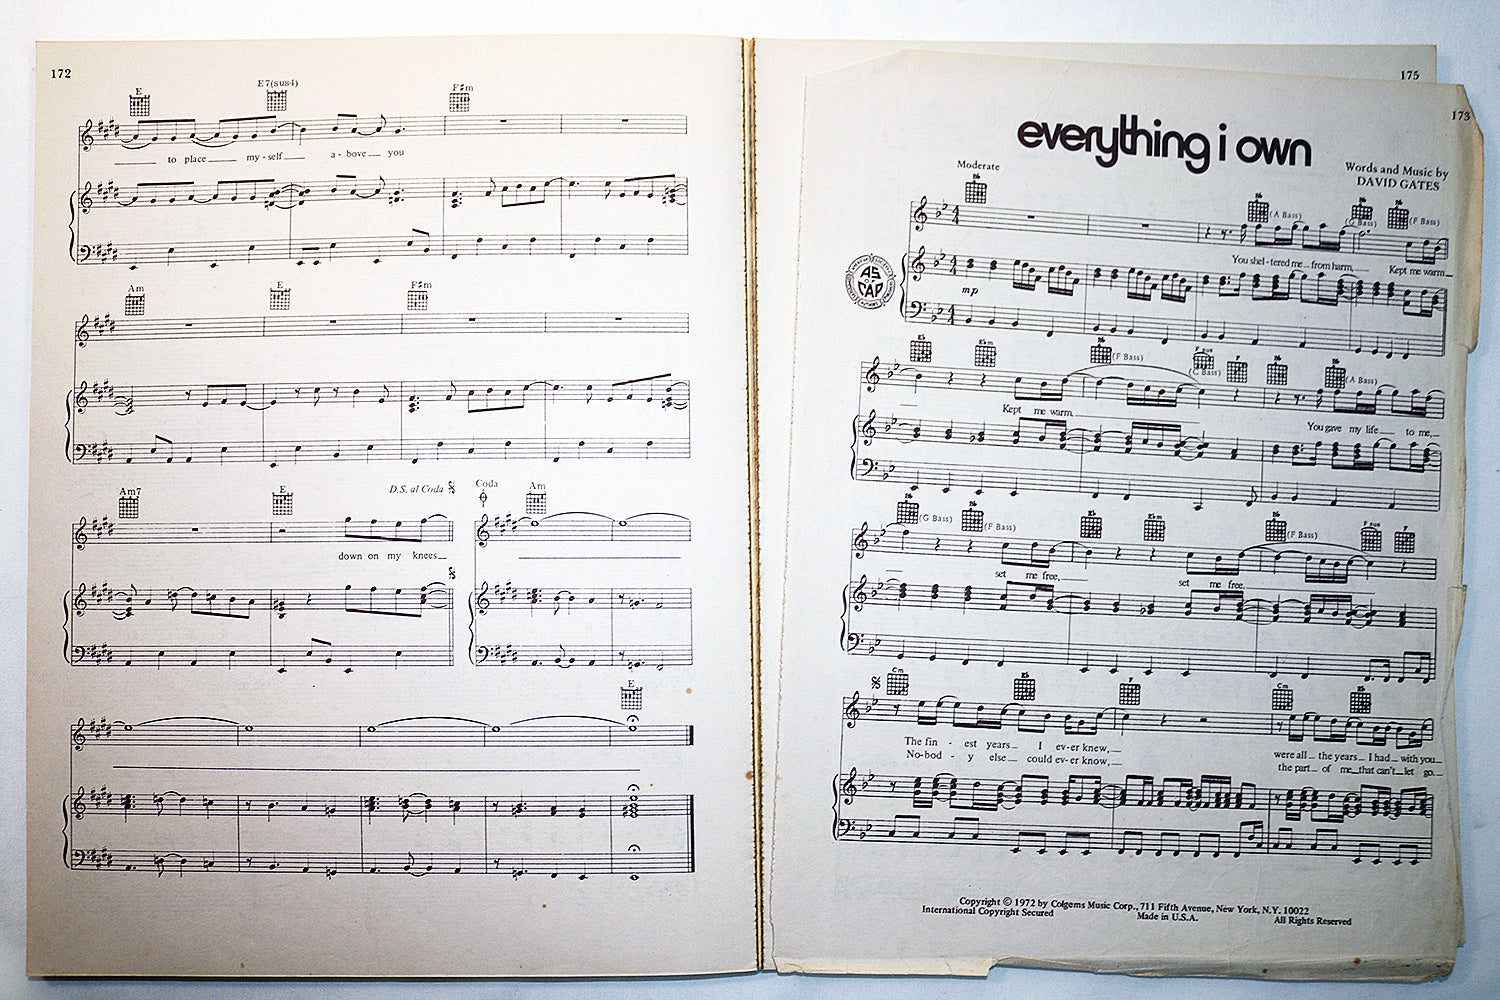 172
E E7(sus4) F♯m
to place my - self a - bove you
Am E F♯m
Am7 E D.S. al Coda Coda Am
down on my knees
E
175
173
everything i own
Words and Music by
DAVID GATES
Moderate
B♭ B♭ (A Bass) B♭ (G Bass) B♭ (F Bass)
You shel - tered me from harm, Kept me warm
AS
CAP
mp
E♭ E♭m B♭ (F Bass) F sus (C Bass) F B♭ B♭ (A Bass)
Kept me warm. You gave my life to me,
B♭ (G Bass) B♭ (F Bass) E♭ E♭m B♭ (F Bass) F sus F
set me free, set me free.
Cm E♭ F Cm E♭
The fin - est years I ev-er knew, were all the years I had with you
No-bod - y else could ev-er know, the part of me that can't let go.
Copyright © 1972 by Colgems Music Corp., 711 Fifth Avenue, New York, N.Y. 10022
International Copyright Secured Made in U.S.A. All Rights Reserved